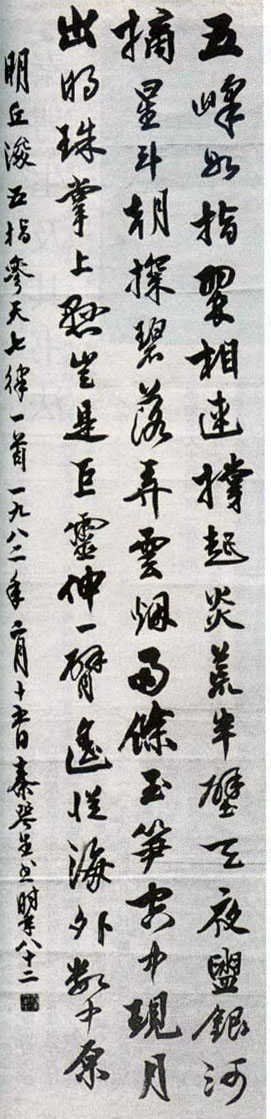 五峰如指翠相連撐起炎荒半壁天夜盥銀河
摘星斗朝探碧落弄雲烟雨餘玉笋空中現月
出明珠掌上懸豈是巨靈伸一臂遙從海外數中原
明丘濬五指參天七律一首一九八二年月十五日秦咢生書時年八十二